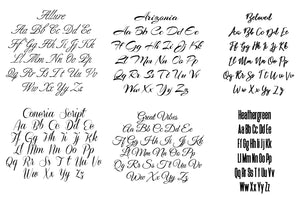 Allure
Aa Bb Cc Dd Ee
Ff Gg Hh Ii Jj Kk
Ll Mm Nn Oo Pp
Qq Rr Ss Tt Uu
Vv Ww Xx Yy Zz
Arizonia
Aa Bb Cc Dd Ee
Ff Gg Hh Ii Jj Kk
Ll Mm Nn Oo Pp
Qq Rr Ss Tt Uu
Vv Ww Xx Yy Zz
Beloved
Aa Bb Cc Dd Ee
Ff Gg Hh Ii Jj Kk
Ll Mm Nn Oo Pp
Qq Rr Ss Tt Uu
Vv Ww Xx Yy Zz
Canoria Script
Aa Bb Cc Dd Ee
Ff Gg Hh Ii Jj Kk
Ll Mm Nn Oo Pp
Qq Rr Ss Tt Uu Vv
Ww Xx Yy Zz
Great Vibes
Aa Bb Cc Dd Ee
Ff Gg Hh Ii Jj Kk
Ll Mm Nn Oo Pp
Qq Rr Ss Tt Uu Vv
Ww Xx Yy Zz
Heathergreen
Aa Bb Cc Dd Ee
Ff Gg Hh Ii Jj Kk
Ll Mm Nn Oo Pp
Qq Rr Ss Tt Uu
Vv Ww Xx Yy Zz